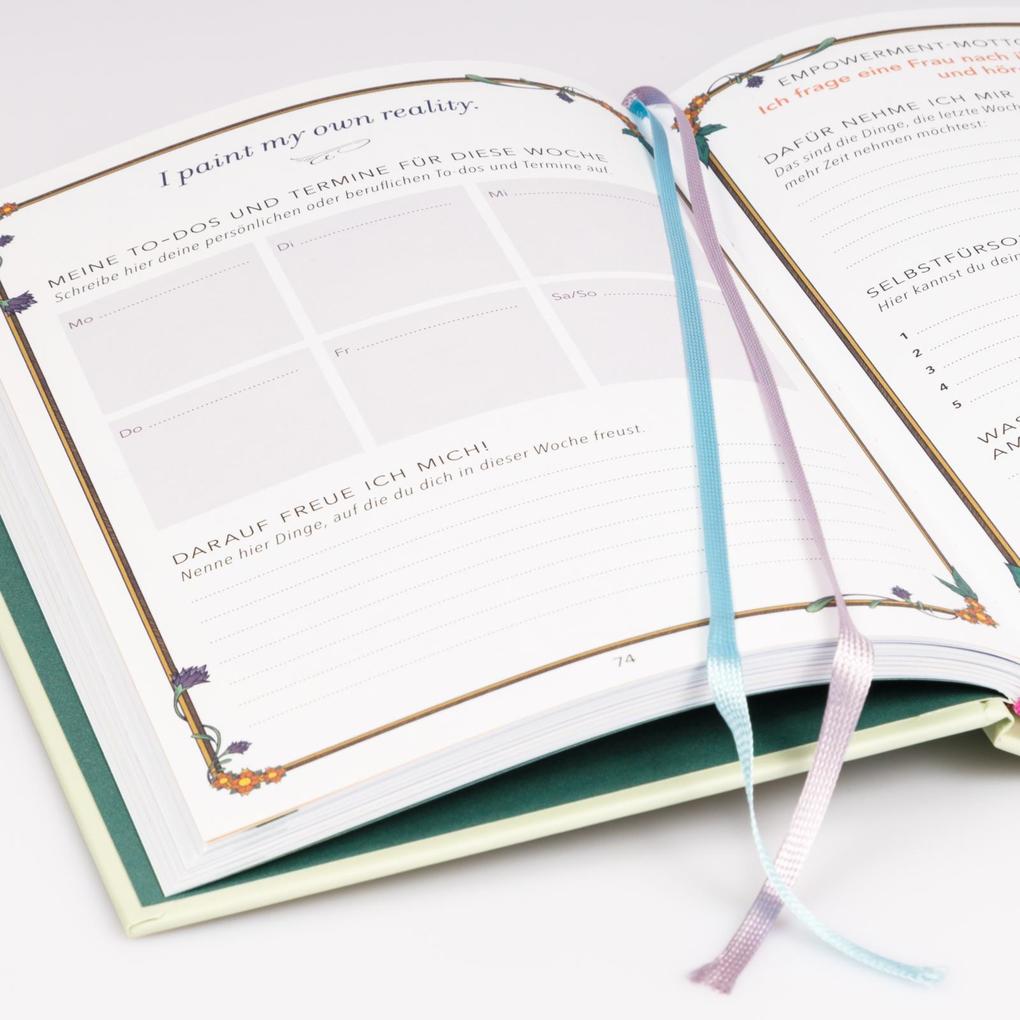 I paint my own reality.
MEINE TO-DOS UND TERMINE FÜR DIESE WOCHE
Schreibe hier deine persönlichen oder beruflichen To-dos und Termine auf.
Mo
Di
Mi
Do
Fr
Sa/So
DARAUF FREUE ICH MICH!
Nenne hier Dinge, auf die du dich in dieser Woche freust.
74
EMPOWERMENT-MOTTO
Ich frage eine Frau nach
und
DAFÜR NEHME ICH MIR
Das sind die Dinge, die letzte
mehr Zeit nehmen möchtest:
Hier kannst du
1
2
3
4
5